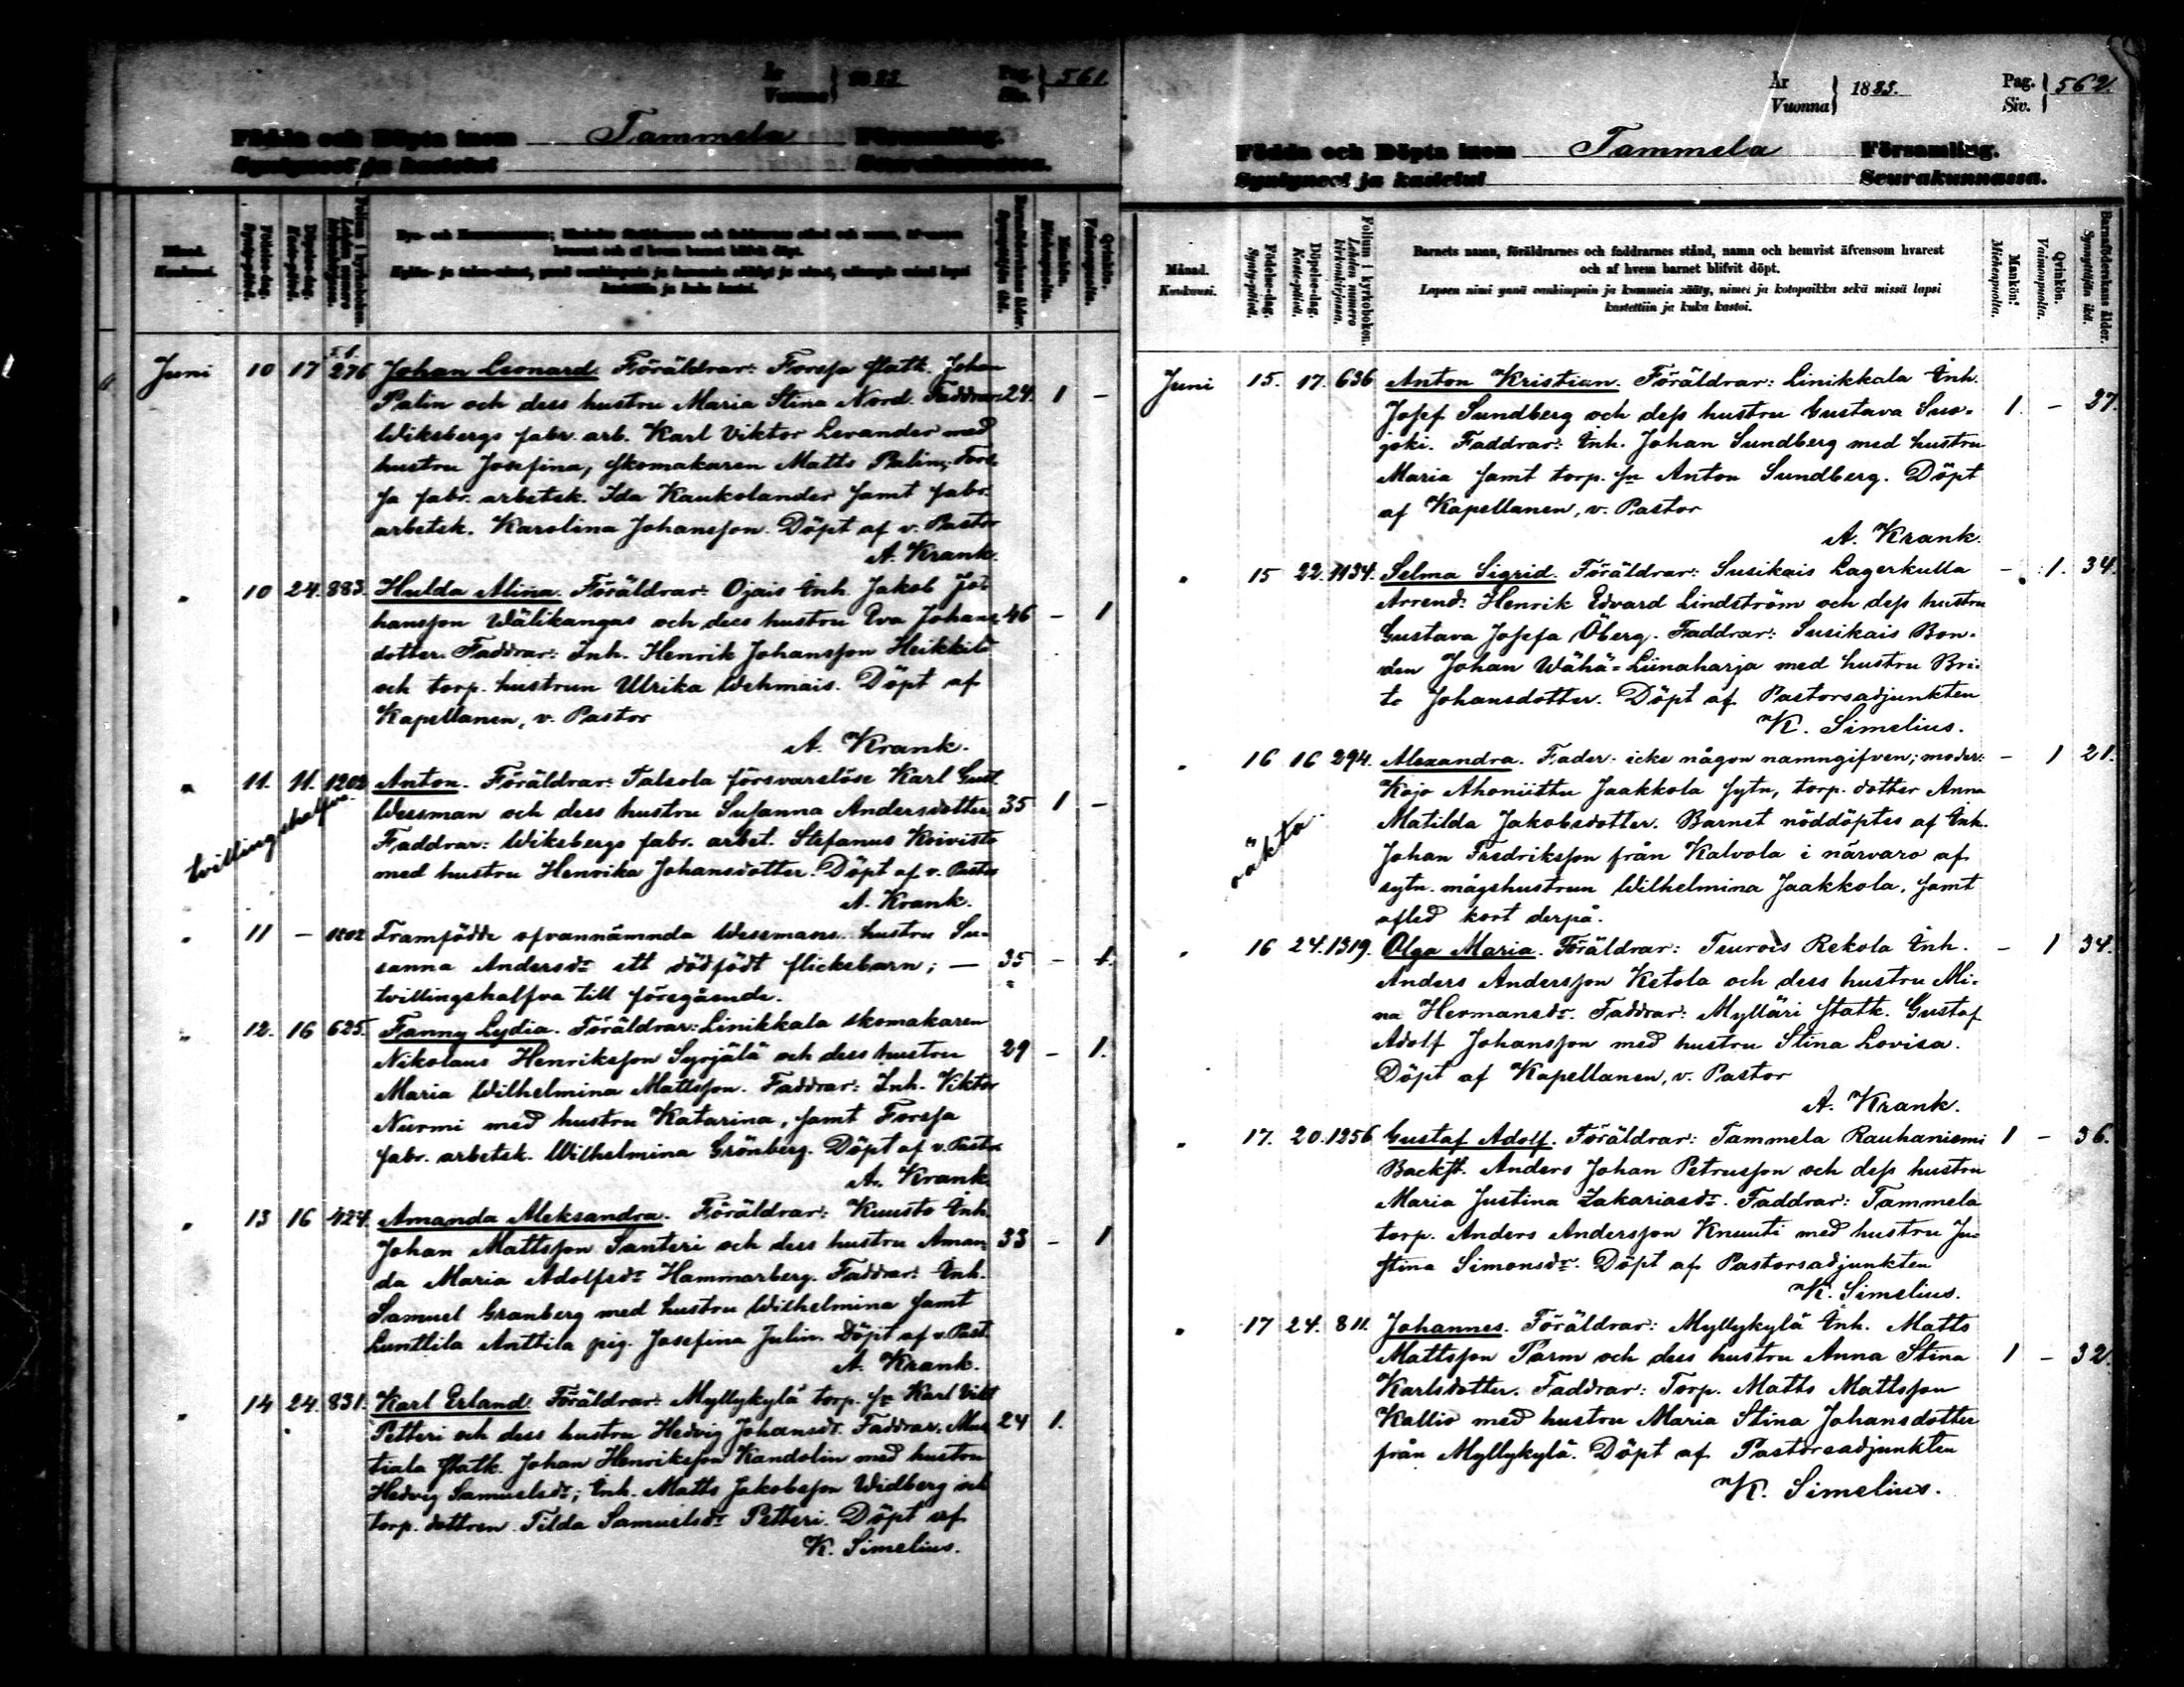 År
Vuonna
1885
Pag.
Siv.
561
Födda och Döpta inom Tammela Församling.
Syntyneet ja kastetut Seurakunnassa.
Månad.
Kuukausi.
Födelse-dag.
Synty-päivä.
Döpelse-dag.
Kaste-päivä.
Folium i kyrkoboken.
Lehden numero kirkonkirjassa.
Barnaföderskans ålder.
Synnyttäjän ikä.
Mankön.
Miehenpuolta.
Qvinkön.
Vaimonpuolta.
Juni 10 17 276 Johan Leonard. Föräldrar: Forssa statk. Johan
Palin och dess hustru Maria Stina Nord. Faddrar: 24. 1 –
Wiksbergs fabr. arb. Karl Viktor Levander med
hustru Josefina, skomakaren Matts Palin, Fors-
sa fabr. arbetsk. Ida Kaukolander samt fabr.
arbetsk. Karolina Johansson. Döpt af v. Pastor
A. Krank.
" 10 24. 883. Hulda Alina. Föräldrar: Ojais Inh. Jakob Jo-
hansson Wälikangas och dess hustru Eva Johans- 46 – 1
dotter. Faddrar: Inh. Henrik Johansson Heikkilä
och torp. hustrun Ulrika Wehmais. Döpt af
Kapellanen, v. Pastor
A. Krank.
" 11. 11. 1202 Anton. Föräldrar: Talsola försvarslöse Karl Gust.
Wessman och dess hustru Susanna Andersdotter. 35 1 –
tvillingshalfva.
Faddrar: Wiksbergs fabr. arbet. Stefanus Koivisto
med hustru Henrika Johansdotter. Döpt af v. Pastor
A. Krank.
" 11 – 1202 Framfödde ofvannämnda Wessmans hustru Su-
sanna Andersdr ett dödfödt flickebarn; – 35 – 1.
tvillingshalfva till föregående.
" 12. 16 625. Fanny Lydia. Föräldrar: Linikkala skomakaren
Nikolaus Henriksson Syrjälä och dess hustru 29 – 1.
Maria Wilhelmina Mattsson. Faddrar: Inh. Viktor
Nurmi med hustru Katarina, samt Forssa
fabr. arbetsk. Wilhelmina Grönberg. Döpt af v. Pastor
A. Krank.
" 13 16 424. Amanda Aleksandra. Föräldrar: Kuusto Inh.
Johan Mattsson Santeri och dess hustru Aman- 33 – 1
da Maria Adolfsdr Hammarberg. Faddrar: Inh.
Samuel Granberg med hustru Wilhelmina samt
Lunttila Anttila pig. Josefina Julin. Döpt af v. Past.
A. Krank.
" 14 24. 831. Karl Erland. Föräldrar: Myllykylä torp. sn Karl Vikt.
Petteri och dess hustru Hedvig Johansdr. Faddrar: Mus- 24 1.
tiala statk. Johan Henriksson Kandolin med hustru
Hedvig Samuelsdr; Inh. Matts Jakobsson Widberg och
torp. dottren Tilda Samuelsdr Petteri. Döpt af
K. Simelius.
År
Vuonna
1885.
Pag.
Siv.
562.
Födda och Döpta inom Tammela Församling.
Syntyneet ja kastetut Seurakunnassa.
Månad.
Kuukausi.
Födelse-dag.
Synty-päivä.
Döpelse-dag.
Kaste-päivä.
Folium i kyrkoboken.
Lehden numero kirkonkirjassa.
Barnets namn, föräldrarnes och faddrarnes stånd, namn och hemvist äfvensom hvarest
och af hvem barnet blifvit döpt.
Lapsen nimi ynnä vanhimpain ja kummein sääty, nimet ja kotopaikka sekä missä lapsi
kastettiin ja kuka kastoi.
Mankön.
Miehenpuolta.
Qvinkön.
Vaimonpuolta.
Barnaföderskans ålder.
Synnyttäjän ikä.
Juni 15. 17. 636 Anton Kristian. Föräldrar: Linikkala Inh.
Josef Sundberg och dess hustru Gustava Suo- 1. – 27.
joki. Faddrar: Inh. Johan Sundberg med hustru
Maria samt torp. sn Anton Sundberg. Döpt
af Kapellanen, v. Pastor
A. Krank.
" 15 22. 1134. Selma Sigrid. Föräldrar: Susikais Lagerkulla – 1. 34.
Arrend. Henrik Edvard Lindström och dess hustru
Gustava Josefa Öberg. Faddrar: Susikais Bon-
den Johan Wähä-Liinaharja med hustru Bri-
ta Johansdotter. Döpt af Pastorsadjunkten
K. Simelius.
" 16 16 294. Alexandra. Fader: icke någon namngifven; moder: – 1 21.
Kojo Ahoniittu Jaakkola sytn, torp. dotter Anna
oäkta.
Matilda Jakobsdotter. Barnet nöddöptes af Inh.
Johan Fredriksson från Kalvola i närvaro af
sytn. mågshustrun Wilhelmina Jaakkola, samt
afled kort derpå.
" 16 24. 1319. Olga Maria. Föräldrar: Teurois Rekola Inh. – 1 34.
Anders Andersson Ketola och dess hustru Mi-
na Hermansdr. Faddrar: Mylläri statk. Gustaf
Adolf Johansson med hustru Stina Lovisa.
Döpt af Kapellanen, v. Pastor
A. Krank.
" 17. 20. 1256 Gustaf Adolf. Föräldrar: Tammela Rauhaniemi 1 – 36.
Backst. Anders Johan Petrusson och dess hustru
Maria Justina Zakariasdr. Faddrar: Tammela
torp. Anders Andersson Knuuti med hustru Ju-
stina Simonsdr. Döpt af Pastorsadjunkten
K. Simelius.
" 17 24. 811. Johannes. Föräldrar: Myllykylä Inh. Matts
Mattsson Parm och dess hustru Anna Stina 1 – 32.
Karlsdotter. Faddrar: Torp. Matts Mattsson
Kallio med hustru Maria Stina Johansdotter
från Myllykylä. Döpt af Pastorsadjunkten
K. Simelius.